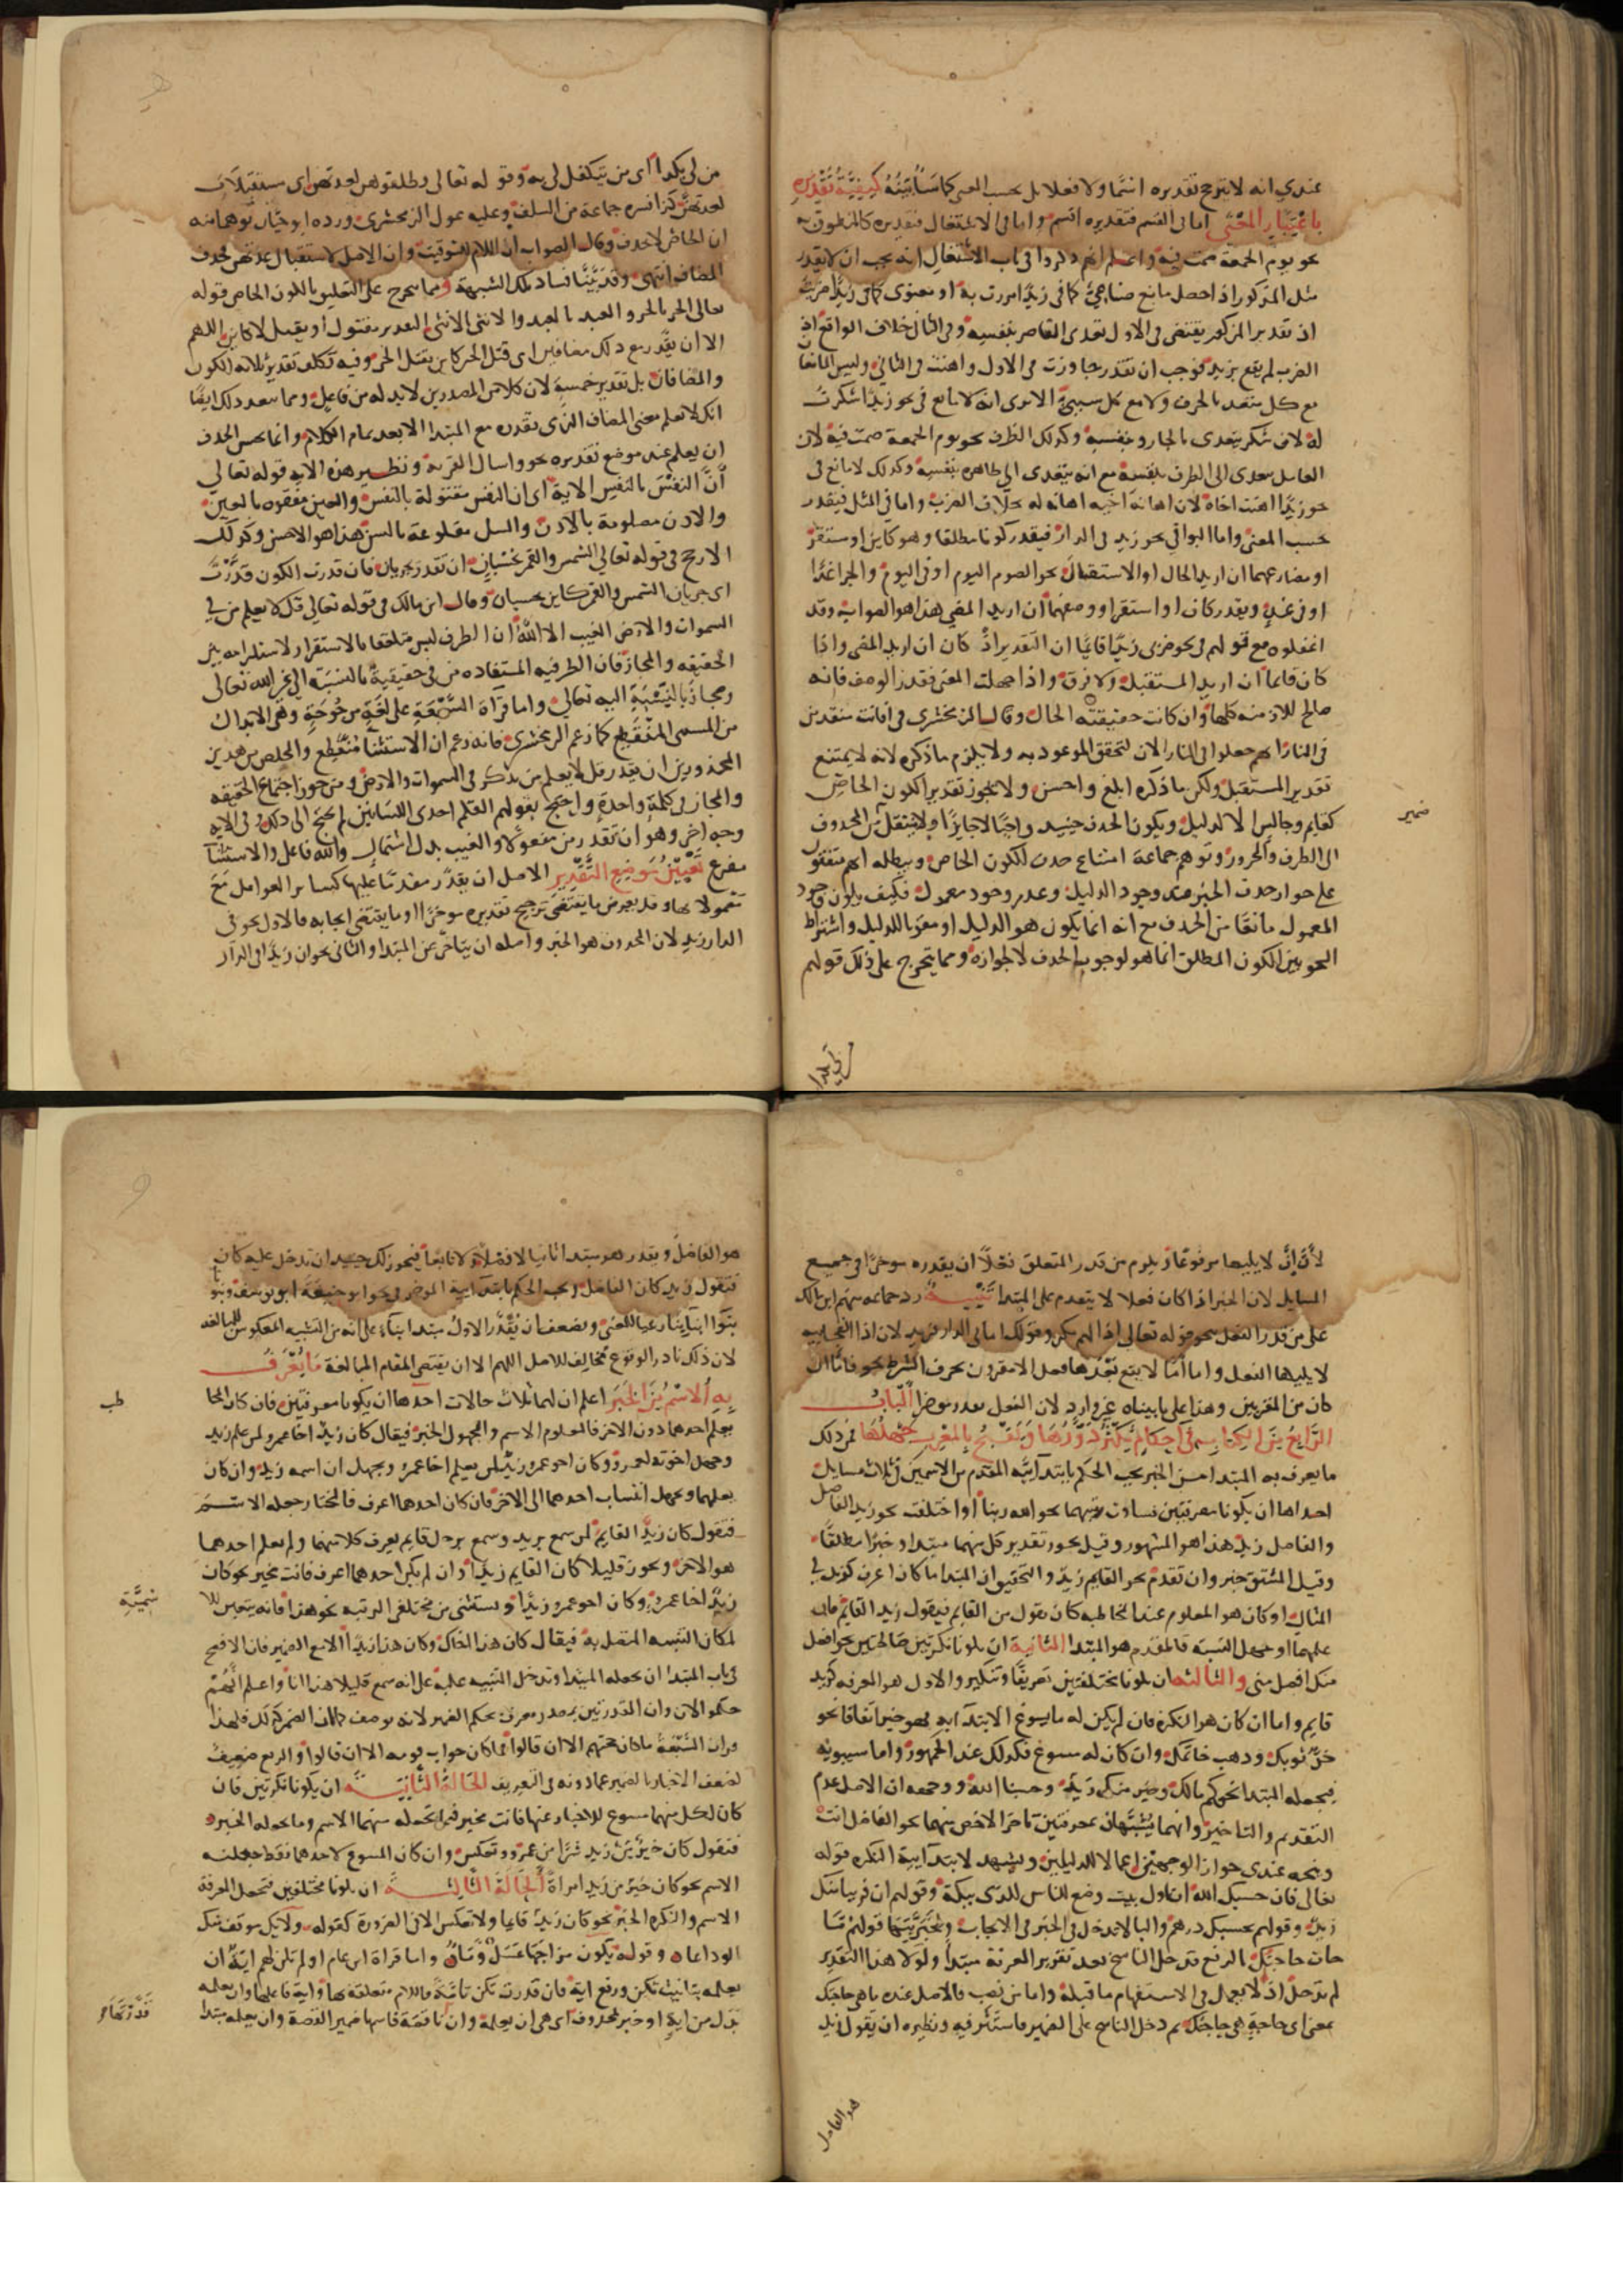 عندي انه لا يترجح تقديره اسما ولا فعلا بل بحسب المعنى كما سأبينه كيفية تقديره
باعتبار المعنى اما في القسم فتقديره اقسم واما في الاشتغال فتقديره كالمنطوق به
نحو يوم الجمعة صمت فيه واعلم انهم ذكروا في باب الاشتغال انه يجب ان لا يقدر
مثل المذكور اذا حصل مانع صناعي كما في زيدا مررت به او معنوي كما في زيدا ضربت
اذ تقدير المذكور يقتضي في الاول تعدي القاصر بنفسه وفي الثاني خلاف الواقع اذ
الضرب لم يقع بزيد فوجب ان تقدر جاوزت في الاول واهنت في الثاني وليس المانعان
مع كل متعد بالحرف ولا مع كل سببي الا ترى انه لا مانع في نحو زيدا شكرت
له لان شكر يتعدى بالجار وبنفسه وكذلك الظرف نحو يوم الجمعة صمت فيه لان
العامل يتعدى الى الظرف بنفسه مع انه يتعدى الى ظاهره بنفسه وكذلك لا مانع في
نحو زيدا اهنت اخاه لان اهانة اخيه اهانة له بخلاف الضرب واما في المثل فيقدر
بحسب المعنى واما البواقي نحو زيد في الدار فيقدر كونا مطلقا وهو كاين او مستقر
او مضارعهما ان اريد الحال او الاستقبال نحو الصوم اليوم او في اليوم والجزا غدا
او في غد ويقدر كان او استقر او وصفهما ان اريد المضي هذا هو الصواب وقد
اغفلوه مع قولهم في نحو ضربي زيدا قايما ان التقدير اذ كان ان اريد المضي واذا
كان قايما ان اريد المستقبل ولا فرق واذا جهلت المعنى فقدر الوصف فانه
صالح للازمنة كلها وان كانت حقيقته الحال وقال الزمخشري في افانت تنقذ من
في النار انهم جعلوا في النار الان لتحقق الموعود به ولا يلزم ما ذكره لانه لا يمتنع
تقدير المستقبل ولكن ما ذكره ابلغ واحسن ولا يجوز تقدير الكون الخاص
كقايم وجالس الا لدليل ويكون الحذف حينيذ واجبا لا جايزا ولا ينتقل من المحذوف
ضمير
الى الظرف والمجرور وتوهم جماعة امتناع حذف الكون الخاص ويبطله انهم متفقون
على جواز حذف الخبر عند وجود الدليل وعدم وجود معمول فكيف يكون وجود
المعمول مانعا من الحذف مع انه انما يكون هو الدليل او مقويا للدليل واشتراط
النحويين الكون المطلق انما هو لوجوب الحذف لا لجوازه ومما يتخرج على ذلك قولهم
من لي بكذا
من لي بكذا اي من يتكفل لي به وقوله تعالى فطلقوهن لعدتهن اي مستقبلات
لعدتهن كذا فسره جماعة من السلف وعليه عول الزمخشري ورده ابو حيان توهما منه
ان الخاص لا يحذف وقال الصواب ان اللام للتوقيت وان الاصل لاستقبال عدتهن فحذف
المضاف انتهى وقد بينا فساد تلك الشبهة ومما يتخرج على التعليق بالكون الخاص قوله
تعالى الحر بالحر والعبد بالعبد والانثى بالانثى التقدير مقتول او يقتل لا كاين اللهم
الا ان يقدر مع ذلك مضافين اي قتل الحر كاين بقتل الحر وفيه تكلف تقدير ثلاثة الكون
والمضافان بل تقدير خمسة لان كلا من المصدرين لا بد له من فاعل ومما يبعد ذلك ايضا
انك لا تعلم معنى المضاف الذي تقدره مع المبتدا الا بعد تمام الكلام وانما يحسن الحذف
ان يعلم عند موضع تقديره نحو واسال القرية ونظير هذه الاية قوله تعالى
أن النفس بالنفس الاية اي ان النفس مقتولة بالنفس والعين مفقوه بالعين
والاذن مصلومة بالاذن والسن مقلوعة بالسن هذا هو الاحسن وكذلك
الارجح في قوله تعالى الشمس والقمر بحسبان ان تقدر يجريان فان قدرت الكون قدرت
اي جريان الشمس والقمر كاين بحسبان وقال ابن مالك في قوله تعالى قل لا يعلم من في
السموات والارض الغيب الا الله ان الظرف ليس متعلقا بالاستقرار لاستلزامه بين
الحقيقه والمجاز فان الظرفية المستفاده من في حقيقية بالنسبة الى غير الله تعالى
ومجاز بالنسبة اليه تعالى واما قراة السبعة على لغة مرجوحة وهي الابدال
من المستثنى المنقطع كما زعم الزمخشري فانه زعم ان الاستثنا منقطع والمخلص من هذين
المحذورين ان يقدر قل لا يعلم من يذكر في السموات والارض ومن جوز اجتماع الحقيقه
والمجاز في كلمة واحدة واحتج بقولهم القلم احدى اللسانين لم يحتج الى ذلك وفي الايه
وجه اخر وهو ان تقدر من مفعولا والغيب بدل اشتمال والله فاعل والاستثنا
مفرغ تعيين موضع التقدير الاصل ان يقدر مقدما عليها كساير العوامل مع
معمولاتها وقد يعرض ما يقتضي ترجيح تقديره موخرا او ما يقتضي ايجابه فالاول نحو في
الدار زيد لان المحذوف هو الخبر واصله ان يتاخر عن المبتدا والثاني نحو ان في الدار زيدا
لان إن لا يليها مرفوعها ويلزم من قدر المتعلق فعلا ان يقدره موخرا في جميع
المسايل لان الخبر اذا كان فعلا لا يتقدم على المبتدا تنبيه رد جماعه منهم ابن مالك
على من قدر الفعل بنحو قوله تعالى اذا لهم مكر وقولك اما في الدار فزيد لان اذا الفجاييه
لا يليها الفعل واما أما لا يقع بعدها فعل الا مقرون بحرف الشرط نحو فاما ان
كان من المقربين وهذا على ما بيناه غير وارد لان الفعل يقدر موخرا الباب
الرابع من الكتاب في ذكر احكام يكثر دورها ويقبح بالمعرب جهلها فمن ذلك
ما يعرف به المبتدا من الخبر يجب الحكم بابتدايية المقدم من الاسمين في ثلاث مسايل
احداها ان يكونا معرفتين تساوت رتبتهما نحو الله ربنا او اختلفت نحو زيد الفاضل
والفاضل زيد هذا هو المشهور وقيل يجوز تقدير كل منهما مبتدا وخبرا مطلقا
وقيل المشتق خبر وان تقدم نحو القايم زيد والتحقيق ان المبتدا ما كان اعرف كزيد في
المثال او كان هو المعلوم عند المخاطب كان يقول من القايم فيقول زيد القايم فان
علمهما وجهل النسبة فالمقدم هو المبتدا الثانية ان يكونا نكرتين صالحتين نحو افضل
منك افضل مني والثالثة ان يكونا مختلفتين تعريفا وتنكيرا والاول هو المعرفه كزيد
قايم واما ان كان هو النكره فان لم يكن له ما يسوغ الابتدا به فهو خبر اتفاقا نحو
خز ثوبك وذهب خاتمك وان كان له مسوغ فكذلك عند الجمهور واما سيبويه
فيجعله المبتدا نحو كم مالك وخير منك زيد وحسبنا الله ووجهه ان الاصل عدم
التقديم والتاخير وانهما شبيهان بمعرفتين تاخر الاخص منهما نحو الفاضل انت
ويتجه عندي جواز الوجهين اعمالا للدليلين ويشهد لابتدايية النكره قوله
تعالى فان حسبك الله ان اول بيت وضع للناس للذي ببكة وقولهم ان قريبا منك
زيد وقولهم بحسبك درهم والبا لا تدخل في الخبر في الايجاب ولخبريتها قولهم ما
جات حاجتك بالرفع فدخل الناسخ بعد تقرير المعرفة مبتدا ولولا هذا التقدير
لم يدخل اذ لا يعمل في الاستفهام ما قبله واما من نصب فالاصل عنده ما هي حاجتك
بمعنى اي حاجة هي حاجتك ثم دخل الناسخ على الضمير فاستتر فيه ونظيره ان يقول زيد
هو الفاضل
هو الفاضل ويقدر هو مبتدا ثانيا لا فصلا ولا تابعا فيجوز لك حينيذ ان تدخل عليه كان
فتقول زيد كان الفاضل ويجب الحكم بابتدايية الموخر في نحو ابو حنيفة ابو يوسف وبنونا
بنوا ابناينا رعيا للمعنى ويضعف ان يقدر الاول مبتدا بناء على انه من التشبيه المعكوس للمبالغه
لان ذلك نادر الوقوع مخالف للاصل اللهم الا ان يقتضي المقام المبالغة ما يعرف
به الاسم من الخبر اعلم ان لهما ثلاث حالات احدها ان يكونا معرفتين فان كان المخا
طب
يعلم احدهما دون الاخر فالمعلوم الاسم والمجهول الخبر فيقال كان زيد اخا عمرو لمن علم زيدا
وجهل اخوته لعمرو وكان اخو عمرو زيدا لمن يعلم اخا عمرو ويجهل ان اسمه زيد وان كان
يعلمهما ويجهل انتساب احدهما الى الاخر فان كان احدهما اعرف فالمختار جعله الاسم
فتقول كان زيد القايم لمن سمع بزيد وسمع برجل قايم يعرف كلا منهما ولم يعلم احدهما
هو الاخر ويجوز قليلا كان القايم زيدا وان لم يكن احدهما اعرف فانت مخير نحو كان
زيد اخا عمرو وكان اخو عمرو زيدا ويستثنى من مختلفي الرتبه نحو هذا فانه يتعين للا
سمية
لمكان التنبيه المتصل به فيقال كان هذا اخاك وكان هذا زيدا الا مع الضمير فان الافصح
في باب المبتدا ان تجعله المبتدا وتدخل التنبيه عليه على انه سمع قليلا هذا انا واعلم انهم
حكموا لان وان المقدرتين بمصدر معرف بحكم الضمير لانه لا يوصف كما ان الضمير كذلك فلهذا
قرات السبعة ما كان حجتهم الا ان قالوا فما كان جواب قومه الا ان قالوا والرفع ضعيف
لضعف الاخبار بالضمير عما دونه في التعريف الحالة الثانية ان يكونا نكرتين فان
كان لكل منهما مسوغ للاخبار عنها فانت مخير فيما تجعله منهما الاسم وما تجعله الخبر
فتقول كان خير من زيد شرا من عمرو وتعكس وان كان المسوغ لاحدهما فقط جعلته
الاسم نحو كان خير من زيد امراة الحالة الثالثة ان يكونا مختلفين فتجعل المعرفة
الاسم والنكره الخبر نحو كان زيد قايما ولا تعكس الا في الضرورة كقوله ولا يك موقف منك
الوداعا وقوله يكون مزاجها عسل وماء واما قراة ابن عامر او لم تكن لهم اية ان
يعلمه بتانيث تكن ورفع اية فان قدرت تكن تامة فاللام متعلقة بها واية فاعلها وان يعلمه
بدل من اية او خبر لمحذوف اي هي ان يعلمه وان ناقصة فاسمها ضمير القصة وان يعلمه مبتدا
قدرتها